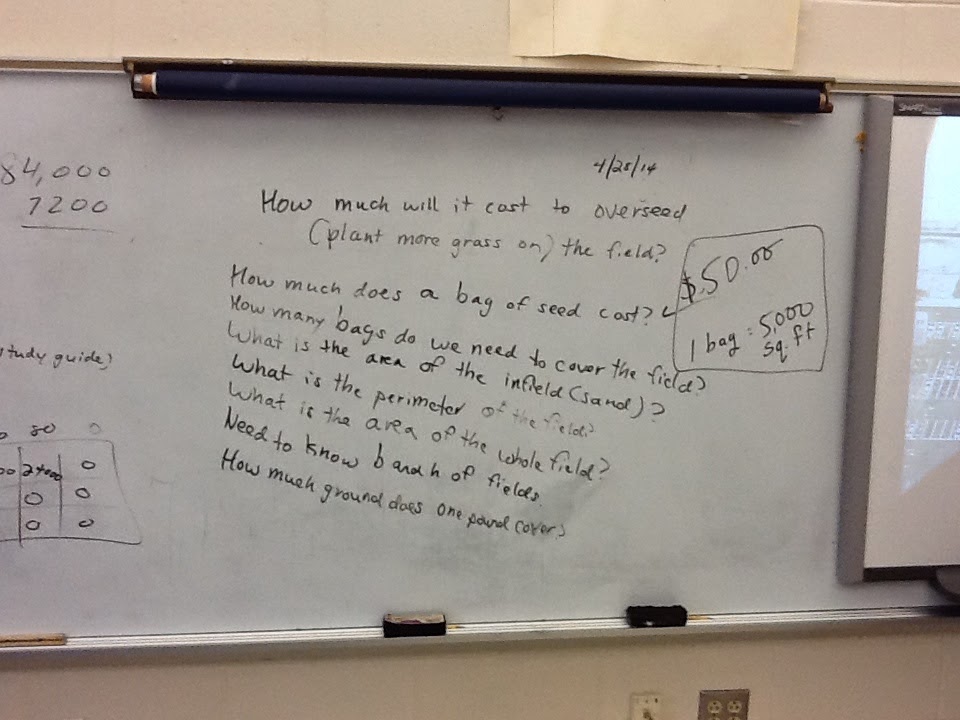 84,000
7200
4/25/14
How much will it cost to overseed
(plant more grass on) the field?
How much does a bag of seed cost?
$50.00
1 bag = 5,000
sq. ft
How many bags do we need to cover the field?
What is the area of the infield (sand)?
What is the perimeter of the field?
What is the area of the whole field?
Need to know b and h of fields.
How much ground does one pound cover?
study guide)
80 0
0
0 0
0 0
SMART